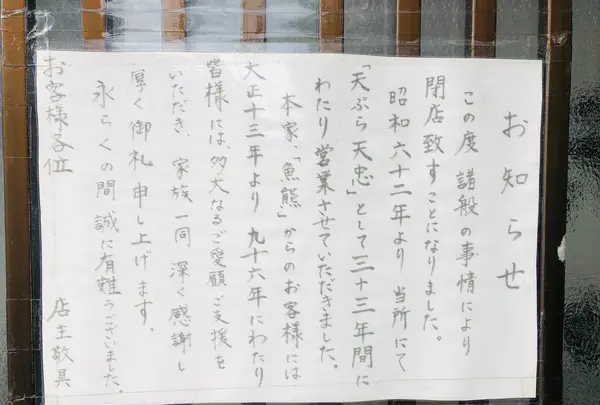 お知らせ
この度 諸般の事情により
閉店致すことになりました。
昭和六十二年より 当所にて
「天ぷら 天忠」として三十三年間に
わたり営業させていただきました。
本家、「魚熊」からのお客様には
大正十三年より 九十六年にわたり
皆様には、多大なるご愛顧ご支援を
いただき、家族一同 深く感謝し
厚く御礼申し上げます。
永らくの間誠に有難うございました。
お客様各位
店主敬具